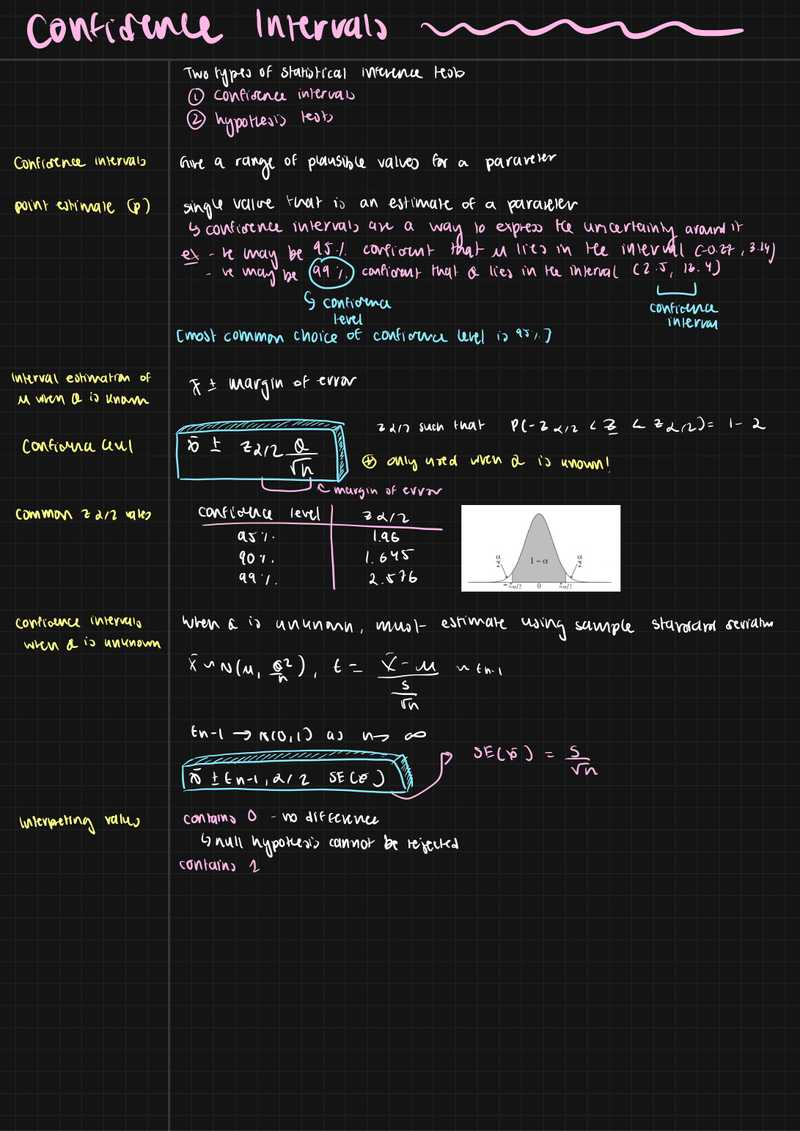 Confidence Intervals
Two types of statistical inference tests
① confidence intervals
② hypothesis tests
Confidence intervals
Give a range of plausible values for a parameter
point estimate (p)
single value that is an estimate of a parameter
↳ confidence intervals are a way to express the uncertainty around it
ex - we may be 95% confident that μ lies in the interval (-0.27, 3.14)
- we may be 99% confident that σ lies in the interval (2.5, 18.4)
↳ confidence level
confidence interval
[most common choice of confidence level is 95%]
Interval estimation of
μ when σ is known
x̄ ± margin of error
Confidence level
x̄ ± zα/2 σ/√n
zα/2 such that P(-zα/2 < z < zα/2) = 1 - 2
⊕ only used when σ is known!
margin of error
Common zα/2 values
confidence level zα/2
95% 1.96
90% 1.645
99% 2.576
α/2 1 − α α/2
−zα/2 0 zα/2
confidence intervals
when σ is unknown
when σ is unknown, must estimate using sample standard deviation
x̄ ~ N(μ, σ²/n), t = (x̄ - μ)/(s/√n) ~ tn-1
tn-1 → N(0,1) as n → ∞
x̄ ± tn-1, α/2 SE(x̄)
SE(x̄) = s/√n
Interpreting values
contains 0 - no difference
↳ null hypothesis cannot be rejected
contains 1